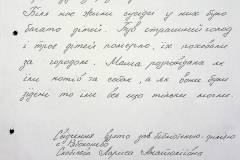 Біля нас жили сусіди у них було
багато дітей. Був страшний голод
і троє дітей померло, їх поховали
за городом. Маша розповідала як
їли котів та собак, а як вони були
їдене то їли все що тільки могли.
Свідчення взято зав. бібліотекою-філією
Лариса Анатоліївна